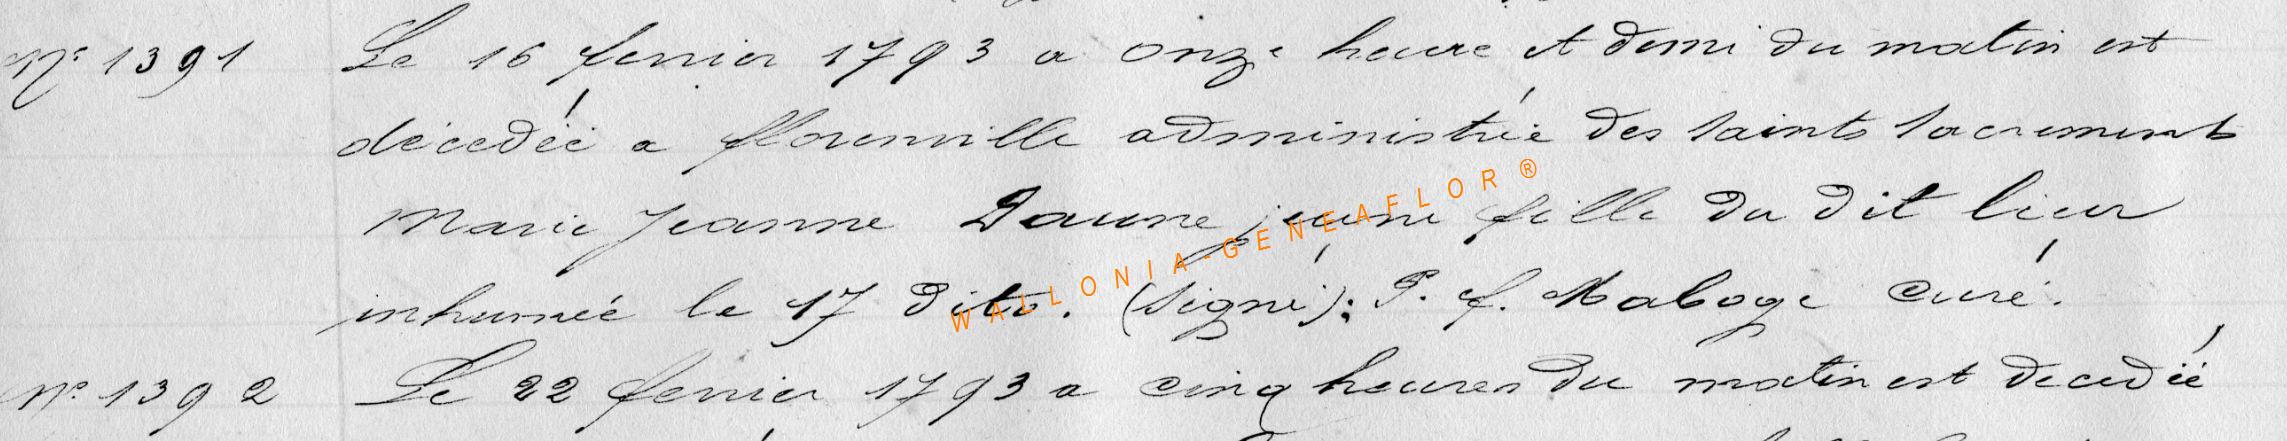 N° 1391 Le 16 fevrier 1793 a onze heure et demi du matin est
décedéé a florenville administrée des saints sacrements
Marie Jeanne Daune jeune fille du dit lieu
inhumée le 17 dito. (signé): P. f. Maboge curé.
N° 1392 Le 22 fevrier 1793 a cinq heures du matin est decedéé
WALLONIA-GENEAFLOR®